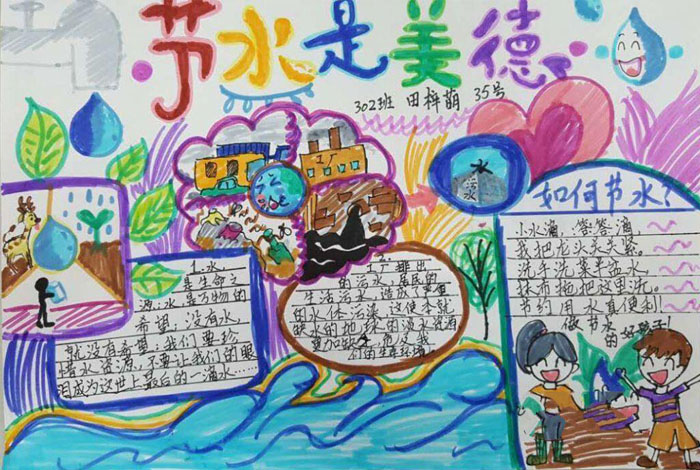 节水是美德
302班 田梓萌 35号
水
污水
1.水,
是生命之
源;水是万物的
希望;没有水,
就没有希望;我们要珍
惜水资源,不要让我们的眼
泪成为这世上最后的一滴水……
2.
工厂排出
的污水,居民的
生活污水,造成了严重
的水体污染,这使本就
缺水的地球的淡水资源
更加
们的生存环境!
如何节水?
小水滴,答答滴,
我把龙头关关紧。
洗手洗菜半盆水,
抹布拖把这里洗。
节约用水真便利!
做节水
的好孩子!